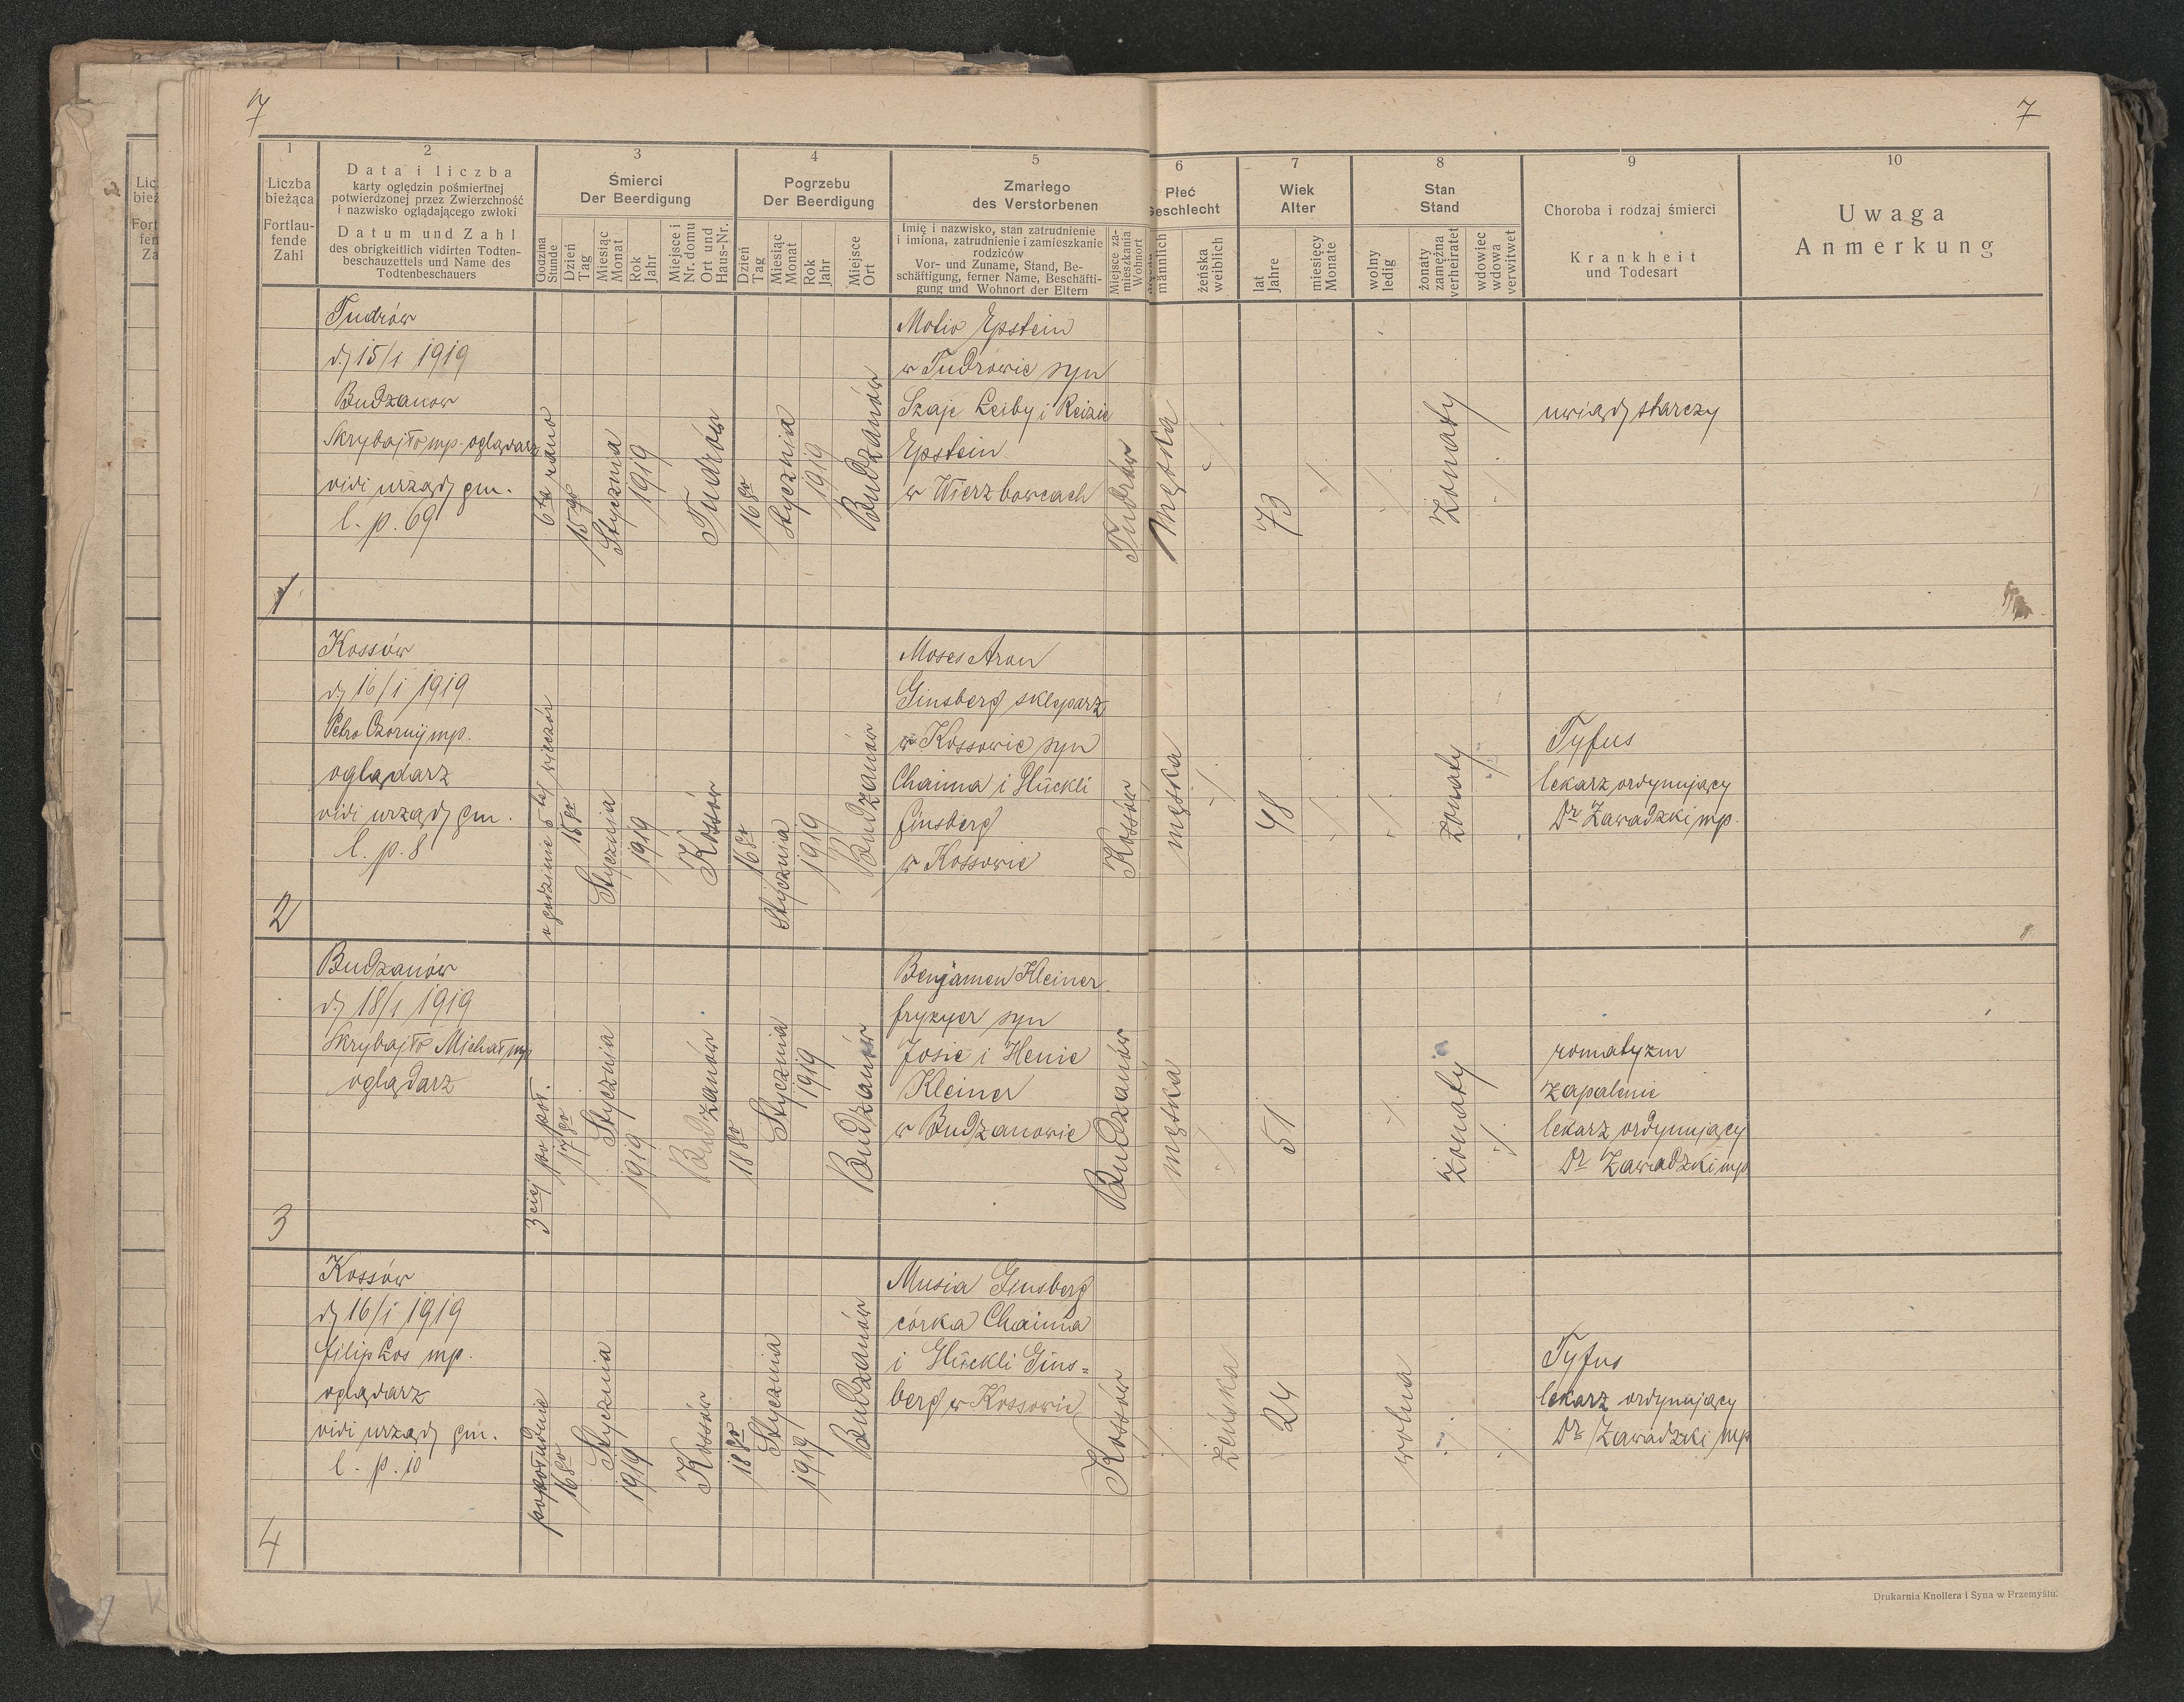 7
7
1
2
3
4
5
6
7
8
9
10
Liczba
bieżąca
Fortlau-
fende
Zahl
Data i liczba
karty oględzin pośmiertnej
potwierdzonej przez Zwierzchność
i nazwisko oglądającego zwłoki
Datum und Zahl
des obrigkeitlich vidirten Todten-
beschauzettels und Name des
Todtenbeschauers
Śmierci
Der Beerdigung
Godzina
Stunde
Dzień
Tag
Miesiąc
Monat
Rok
Jahr
Miejsce i
Nr. domu
Ort und
Haus-Nr.
Pogrzebu
Der Beerdigung
Dzień
Tag
Miesiąc
Monat
Rok
Jahr
Miejsce
Ort
Zmarłego
des Verstorbenen
Imię i nazwisko, stan zatrudnienie
i imiona, zatrudnienie i zamieszkanie
rodziców
Vor- und Zuname, Stand, Be-
schäftigung, ferner Name, Beschäfti-
gung und Wohnort der Eltern
Miejsce za-
mieszkania
Wohnort
Płeć
Geschlecht
männlich
żeńska
weiblich
Wiek
Alter
lat
Jahre
miesięcy
Monate
Stan
Stand
wolny
ledig
żonaty
zamężna
verheiratet
wdowiec
wdowa
verwitwet
Choroba i rodzaj śmierci
Krankheit
und Todesart
Uwaga
Anmerkung
1
Tudrów
d. 15/1 1919
Budzanow
Skrybajło mp. oglądarz
vidi urząd gm.
l. p. 69
6ta rano
15go
Stycznia
1919
Tudrów
16go
Stycznia
1919
Budzanów
Motio Epstein
w Tudrowie syn
Szaje Leiby i Reizie
Epstein
w Wierzbowcach
Tudrów
męska
73
żonaty
uwiąd starczy
2
Kossów
d. 16/1 1919
Petro Czornyj mp.
oglądarz
vidi urząd gm.
l. p. 8
o godzinie 6tej wieczór
15go
Stycznia
1919
Kossów
16go
Stycznia
1919
Budzanów
Moses Aron
Ginsberg skleparz
w Kossowie syn
Chaima i Glückli
Ginsberg
w Kossowie
Kossów
męska
48
żonaty
Tyfus
lekarz ordynujący
Dr Zawadzki mp.
3
Budzanów
d. 18/1 1919
Skrybajło Michał mp
oglądarz
3ciej po poł.
17go
Stycznia
1919
Budzanów
18go
Stycznia
1919
Budzanów
Benjamen Kleiner
fryzyer syn
Josie i Henie
Kleiner
w Budzanowie
Budzanów
męska
51
żonaty
romatyzm
zapalenie
lekarz ordynujący
Dr Zawadzki mp
4
Kossów
d. 16/1 1919
Filip Łos mp.
oglądarz
vidi urząd gm.
l. p. 10
popołudnie
16go
Stycznia
1919
Kossów
18go
Stycznia
1919
Budzanów
Musia Ginsberg
córka Chaima
i Glückli Gins=
berg w Kossowie
Kossów
żeńska
24
wolna
Tyfus
lekarz ordynujący
Dr Zawadzki mp
Drukarnia Knollera i Syna w Przemyślu.